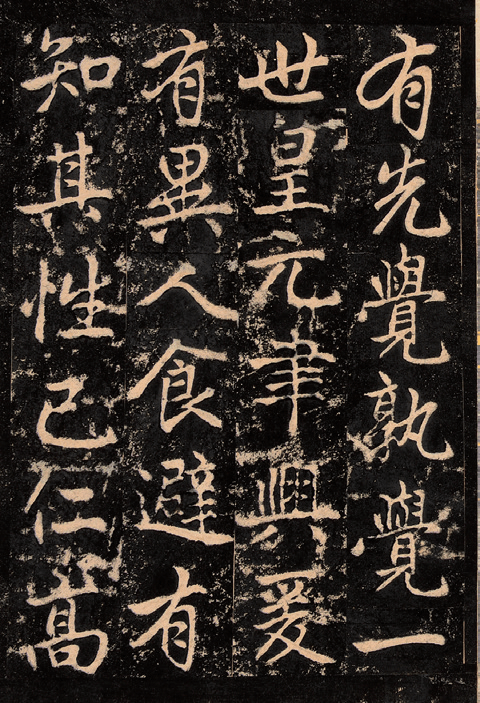 有先覺孰覺一
世皇元聿興爰
有異人食避有
知其性已仁嵩